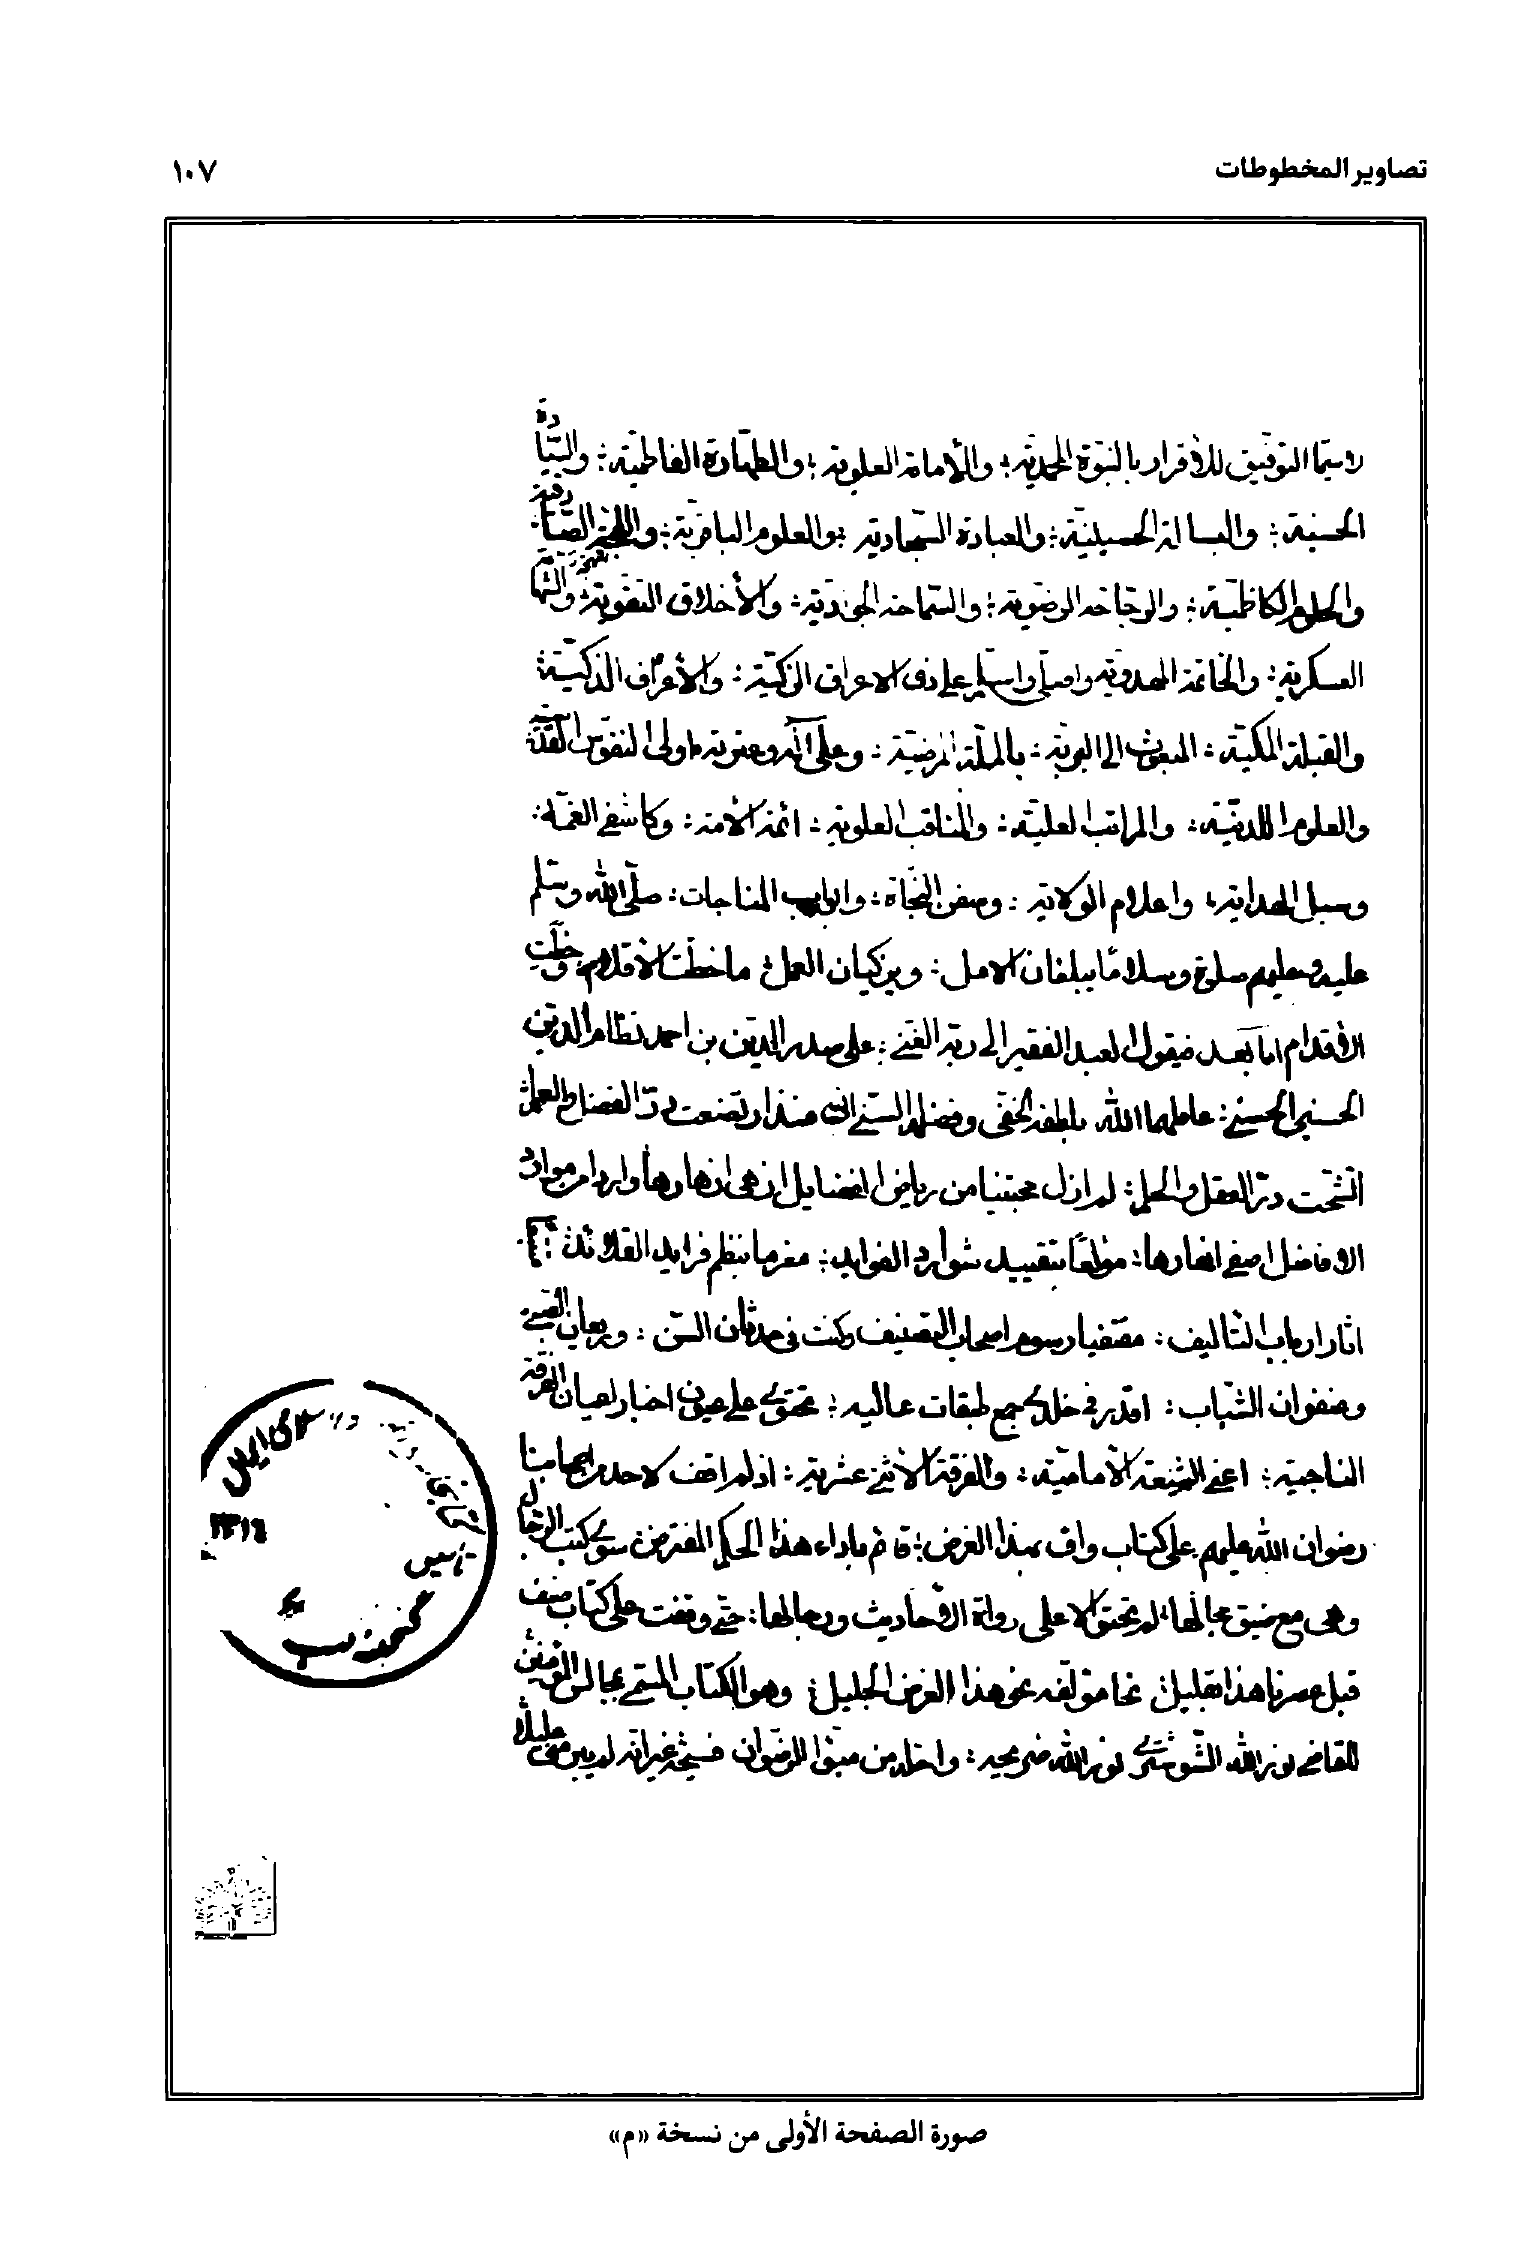 تصاوير المخطوطات
١٠٧
لاسيّما التوفيق للأقرار بالنبّوة المحمديّة؛ والأمامة العلوية؛ والطهارة الفاطميّة؛ والسّيادة
الحسنية؛ والبسالة الحسينيّة؛ والعبادة السّجادية؛ والعلوم الباقريّة؛ و الصّادقيّة
والحلوم الكاظميّة؛ والرضوية؛ والسّماحة الجوادية؛ والأخلاق النقوية؛ والشهامة
العسكرية؛ والخاتمة المهدوية واصلّى واسلّم على ذى الاعراق الزكيّة؛ والأعراف الذكيّة؛
والقبلة المكيّة؛ المبعوث الى البرية؛ بالملّة المرضيّة؛ وعلى آله وعترته اولى النفوس القدسيّة
والعلوم اللدنيّة؛ والمراتب العليّة؛ والمناقب العلوية؛ ائمة الأمة؛ وكاشفى الغمّة؛
وسبل الهداية؛ واعلام الولاية؛ وسفن النّجاة؛ وابواب المناجات؛ صلّى الله وسلّم
عليه وعليهم صلوة وسلامًا يبلغان الامل؛ ويزكيان العمل؛ ما خطّت الأقلام؛ وخطت
الأقدام امّا بعد فيقول العبد الفقير الى ربّه الغنى؛ على صدر الدّين بن احمد نظام الدين
الحسنى الحسينى؛ عاملهما الله بلطفه الخفّى وفضله السّنى انّى منذ ارتضعت درّ الفضل والعلم؛
اتّشحت درّ العقل والحلم؛ لم ازل مجتنيا من رياض الفضايل ازهى ازهارها واردا من موارد
الافاضل اصفى انهارها؛ مولعًا بتقييد شوارد الفوايد؛ مغرما بنظم فرايد القلائد؛
اثار ارباب التأليف؛ مقتفيا رسوم اصحاب التصنيف وكنت فى حدثان السّن؛ وريعان الصّبى
وعنفوان الشّباب؛ اقدّر فى خلدى جمع طبقات عاليه؛ تحتوى على عيون اخبار لعيان الفرقة
الناجية؛ اعنى الشيعة الأمامية؛ والفرقة الأثنى عشرية؛ اذ لم اقف لاحد من اصحابنا
رضوان الله عليهم على كتاب واف بهذا الغرض؛ قائم باداء هذا الحكم المفترض سوى كتب الرّجال
وهى مع ضيق مجالها؛ لم تحتو الا على رواة الأحاديث ورجالها؛ حتى وقفت على كتاب صنف
قبل عصرنا هذا بقليل؛ نحا مؤلفه نحو هذا الغرض الجليل؛ وهو الكتاب المسّمى بمجالس المؤمنين
للقاضى نور الله الشّوشترى نور الله ضريحه؛ واحلّه من مبوّا الرضوان فسيحه غير انه لم يبرء غليلا
صورة الصفحة الأولى من نسخة «م»